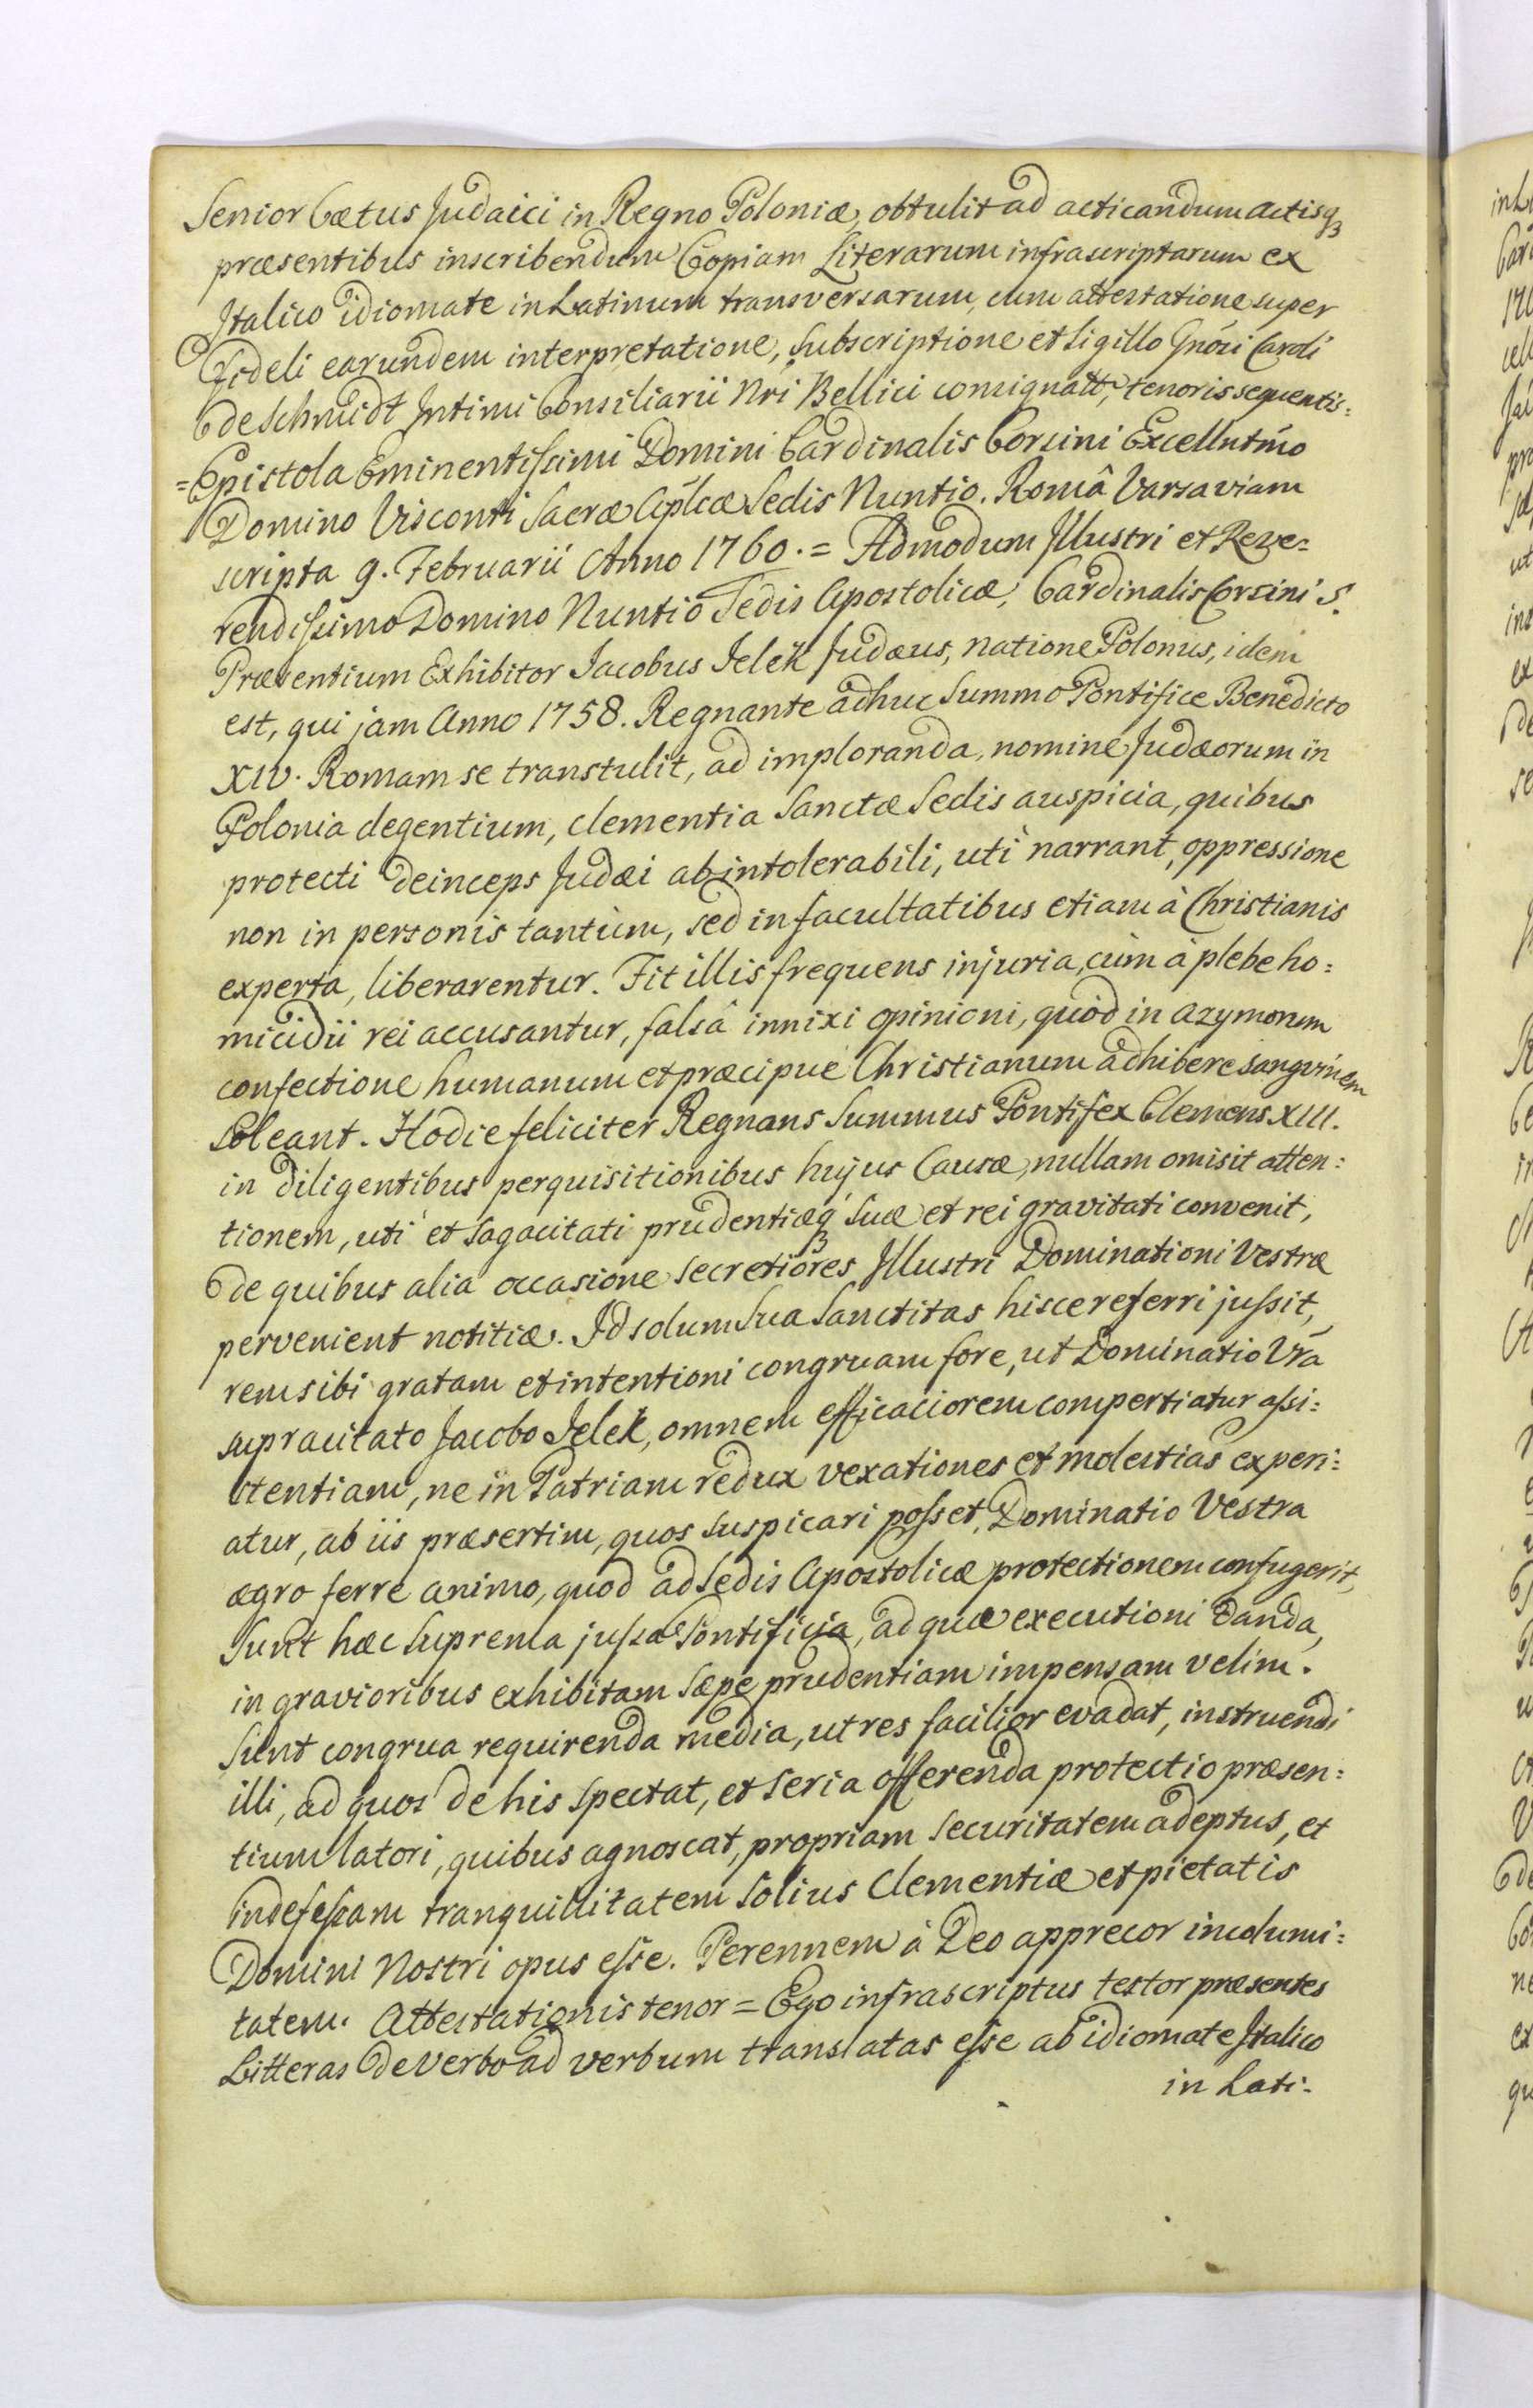 Senior Cœtus Judaici in Regno Poloniæ, obtulit ad acticandum actisq3
præsentibus inscribendum Copiam Literarum infrascriptarum ex
Italico idiomate in Latinum transversarum, cum attestatione super
fideli earundem interpretatione, subscriptione et Sigillo Gnósi Caroli
de Schmidt Intimi Consiliarii Nri Bellici comignatt, tenoris sequentis:
=Epistola Eminentissimi Domini Cardinalis Corsini Excellntmo
Domino Visconti Sacræ Aplicæ Sedis Nuntio. Româ Varsaviam
scripta 9. Februarii Anno 1760. = Admodum Illustri et Reve=
rendissimo Domino Nuntio Sedis Apostolicæ, Cardinalis Corsini S.
Præsentium Exhibitor Jacobus Jelek Judæus, natione Polonus, idem
est, qui jam Anno 1758. Regnante adhuc Summo Pontifice Benedicto
XIV. Romam se transtulit, ad imploranda, nomine Judæorum in
Polonia degentium, clementia Sanctæ Sedis auspicia, quibus
protecti deinceps Judæi ab intolerabili, uti narrant, oppressione
non in personis tantùm, sed in facultatibus etiam à Christianis
experta, liberarentur. Fit illis frequens injuria, cùm à plebe ho:
micidii rei accusantur, falsâ innixi opinioni, quod in azymorum
confectione humanum et præcipuè Christianum adhibere sangvinem
soleant. Hodie feliciter Regnans Summus Pontifex Clemens XIII.
in diligentibus perquisitionibus hujus Causæ, nullam omisit atten:
tionem, uti et sagacitati prudentiæq3 suæ et rei gravitati convenit,
de quibus alia occasione secretiores Illustri Dominationi Vestræ
pervenient notitiæ. Id solum Sua Sanctitas hisce referri jussit,
rem sibi gratam et intentioni congruam fore, ut Dominatio Vrã
supracitato Jacobo Jelek, omnem efficaciorem compertiatur assi:
stentiam, ne in Patriam redux vexationes et molestias experi:
atur, ab iis præsertim, quos suspicari posset, Dominatio Vestra
ægro ferre animo, quod ad Sedis Apostolicæ protectionem confugerit,
Sunt hæc Suprema jussa Pontificia, ad quæ executioni danda,
in gravioribus exhibitam sæpe prudentiam impensam velim.
Sunt congrua requirenda media, ut res facilior evadat, instruendi
illi, ad quos de his spectat, et seria offerenda protectio præsen:
tium latori, quibus agnoscat, propriam securitatem adeptus, et
indefessam tranquillitatem solius Clementiæ et pietatis
Domini Nostri opus esse. Perennem à Deo apprecor incolumi:
tatem. Attestationis tenor = Ego infrascriptus testor præsentes
Litteras de verbo ad verbum translatas esse ab idiomate Italico
in Lati-